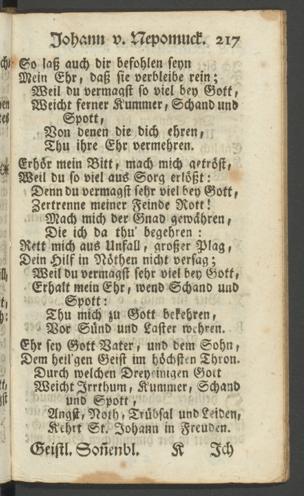 Johann v. Nepomuck. 217
So laß auch dir befohlen seyn
Mein Ehr, daß sie verbleibe rein;
Weil du vermagst so viel bey Gott,
Weicht ferner Kummer, Schand und
Spott,
Von denen die dich ehren,
Thu ihre Ehr vermehren.
Erhör mein Bitt, mach mich getröst,
Weil du so viel aus Sorg erlößt:
Denn du vermagst sehr viel bey Gott,
Zertrenne meiner Feinde Rott!
Mach mich der Gnad gewähren,
Die ich da thu' begehren:
Rett mich aus Unfall, großer Plag,
Dein Hilf in Nöthen nicht versag;
Weil du vermagst sehr viel bey Gott,
Erhalt mein Ehr, wend Schand und
Spott:
Thu mich zu Gott bekehren,
Vor Sünd und Laster wehren.
Ehr sey Gott Vater, und dem Sohn,
Dem heil'gen Geist im höchsten Thron.
Durch welchen Dreyeinigen Gott
Weicht Irrthum, Kummer, Schand
und Spott,
Angst, Noth, Trübsal und Leiden,
Kehrt St. Johann in Freuden.
Geistl. Soñenbl. K Ich